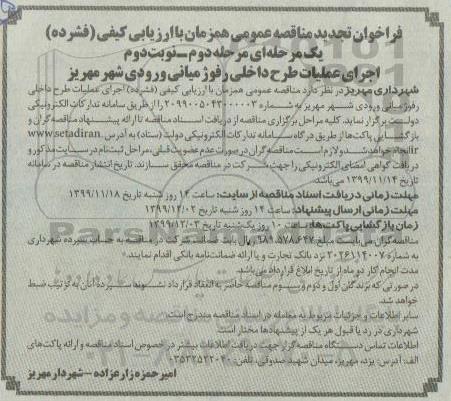 فراخوان تجدید مناقصه عمومی همزمان با ارزیابی کیفی (فشرده)
یک مرحله‌ای مرحله دوم ـ نوبت دوم
اجرای عملیات طرح داخلی رفوژ میانی ورودی شهر مهریز
شهرداری مهریز در نظر دارد مناقصه عمومی همزمان با ارزیابی کیفی (فشرده) اجرای عملیات طرح داخلی
رفوژ میانی ورودی شهر مهریز به شماره ۲۰۹۹۰۰۵۰۴۳۰۰۰۰۰۳ را از طریق سامانه تدارکات الکترونیکی
دولت برگزار نماید. کلیه مراحل برگزاری مناقصه از دریافت اسناد مناقصه تا ارائه پیشنهاد مناقصه‌گران و
بازگشایی پاکت‌ها از طریق درگاه سامانه تدارکات الکترونیکی دولت (ستاد) به آدرس www.setadiran.
ir انجام خواهد شد و لازم است مناقصه‌گران در صورت عدم عضویت قبلی، مراحل ثبت‌نام در سایت مذکور و
دریافت گواهی امضای الکترونیکی را جهت شرکت در مناقصه محقق سازند. تاریخ انتشار مناقصه در سامانه
تاریخ ۱۳۹۹/۱۱/۱۴ می‌باشد.
مهلت زمانی دریافت اسناد مناقصه از سایت: ساعت ۱۴ روز شنبه تاریخ ۱۳۹۹/۱۱/۱۸
مهلت زمانی ارسال پیشنهاد: ساعت ۱۴ روز شنبه تاریخ ۱۳۹۹/۱۲/۰۲
زمان بازگشایی پاکت‌ها: ساعت ۱۰ روز یکشنبه تاریخ ۱۳۹۹/۱۲/۰۳
مناقصه‌گران می‌بایست مبلغ ریال بابت سپرده شرکت در مناقصه به حساب سپرده شهرداری
به شماره ۲۰۲۶۱۱۴۰۰۷ نزد بانک تجارت و یا ارائه ضمانت‌نامه بانکی اقدام نمایند.
مدت انجام کار دو ماه از تاریخ ابلاغ قرارداد می‌باشد.
در صورتی که برندگان اول و دوم و سوم مناقصه حاضر به انعقاد قرارداد نشوند سپرده آنان به ترتیب ضبط
خواهد شد.
سایر اطلاعات و جزئیات مربوط به معامله در اسناد مناقصه مندرج است.
شهرداری در رد یا قبول هر یک از پیشنهادها مختار است.
اطلاعات تماس دستگاه مناقصه‌گزار جهت دریافت اطلاعات بیشتر در خصوص اسناد مناقصه و ارائه پاکت‌های
الف: آدرس: یزد، مهریز، میدان شهید صدوقی، تلفن: ۰۳۵۳۲۵۳۲۰۴۰
امیر حمزه زارع‌زاده – شهردار مهریز